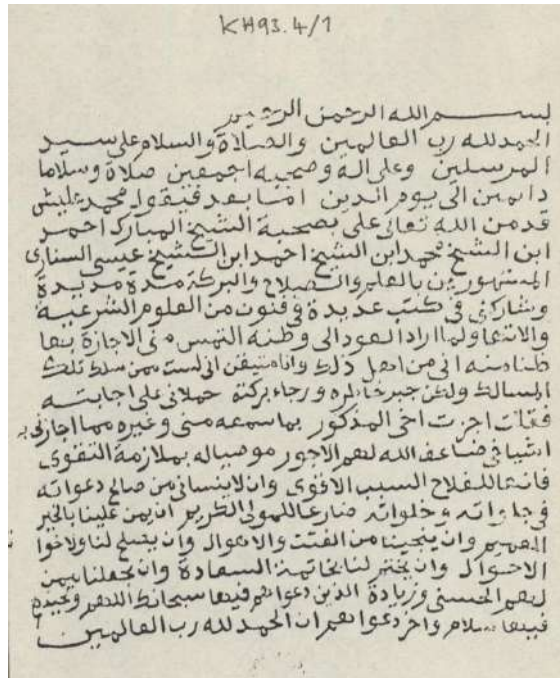 KH93.4/1
بسم الله الرحمن الرحيم
الحمد لله رب العالمين والصلاة والسلام على سيد
المرسلين وعلى اله وصحبه اجمعين صلاة وسلاما
دايمين الى يوم الدين اما بعد فيقول محمد عليش
قد من الله تعالى على بصحبة الشيخ المبارك احمد
ابن الشيخ محمد ابن الشيخ احمد ابن الشيخ عيسى السنارى
المشهورين بالعلم والصلاح والبركة مدة مديدة
وشاركنى فى كتب عديدة فى فنون من العلوم الشرعية
والاتها ولما اراد العود الى وطنه التمس منى الاجازة بها
ظنا منه انى من اهل ذلك وانا متيقن انى لست ممن سلك تلك
المسالك ولكن جبر خاطره ورجاء بركته حملانى على اجابته
فقلت اجزت اخى المذكور بما سمعه منى وغيره مما اجازنى به
اشياخى ضاعف الله لهم الاجور موصيا له بملازمة التقوى
فانها للفلاح السبب الاقوى وان لا ينسانى من صالح دعواته
فى جلواته وخلواته ضارعا للمولى الكريم ان يمن علينا بالخير
العميم وان ينجينا من الفتن والاهوال وان يصلح لنا ولاخوا
الاحوال وان يختم لنا بخاتمة السعادة وان يجعلنا ممن
لهم الحسنى وزيادة الذين دعواهم فيها سبحانك اللهم وتحيتهم
فيها سلام واخر دعواهم ان الحمد لله رب العالمين